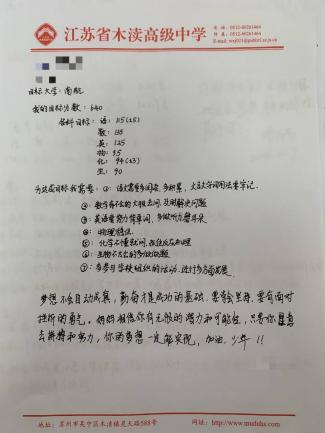 江苏省木渎高级中学
电话:0512-66261464
传真:0512-66261464
目标大学:南航
我的目标分数:640
各科目标:语:115(±5)
数:135
英:125
物:
化:94(±3)
生:90
为达成目标我需要:①:语文需要多阅读,多积累,文言文字词用法要牢记.
②:数学有不会的大胆去问,及时解决问题
③:英语需努力背单词,多做听力磨耳朵
④:物理稳住.
⑤:化学不懂就问,
⑥:生物不大意
⑦:多参与学校组织的活动.进行多方面发展.
梦想不会自动成真,勤奋才是成功的基础.要学会坚持,要有面对
挫折的勇气.妈妈相信你有无限的潜力和可能性,只要你愿意
去拼搏和努力,你的梦想一定能实现,加油,少年!!
地址:苏州市吴中区木渎镇灵天路588号
网址:http://www.muduhs.com